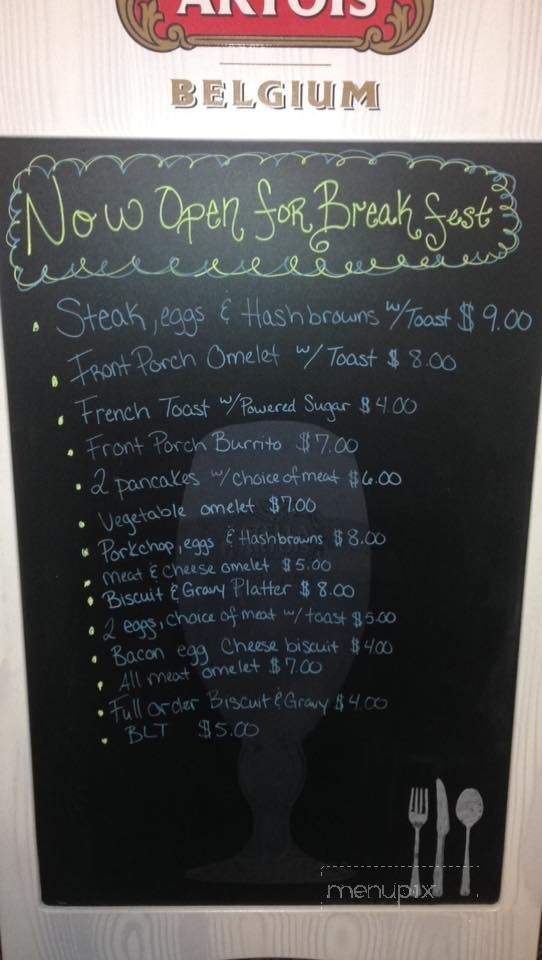 ARTOIS
BELGIUM
Now Open for Breakfest
Steak, eggs & Hashbrowns w/Toast $9.00
Front Porch Omelet w/ Toast $8.00
French Toast w/Powered Sugar $4.00
Front Porch Burrito $7.00
2 pancakes w/choice of meat $6.00
Vegetable omelet $7.00
Porkchop, eggs & Hashbrowns $8.00
meat & cheese omelet $5.00
Biscuit & Gravy Platter $8.00
2 eggs, choice of meat w/ toast $5.00
Bacon egg Cheese biscuit $4.00
All meat omelet $7.00
Full order Biscuit & Gravy $4.00
BLT $5.00
menupix